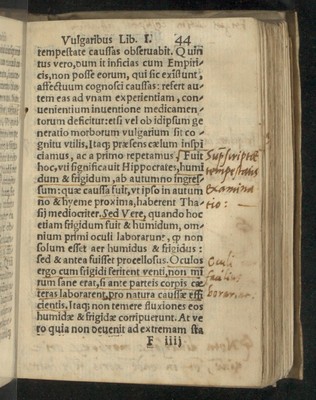 Vulgaribus Lib. I. 44
tempestate caussas obseruabit. Quin
tus vero, dum it inficias cum Empiri-
cis, non posse eorum, qui sic existunt,
affectuum cognosci caussas: refert au-
tem eas ad vnam experientiam, con-
uenientium inuentione medicamen-
torum deficitur: etsi vel ob id ipsum ge
neratio morborum vulgarium sit co-
gnitu vtilis, Itaq; præsens cælum inspi
ciamus, ac a primo repetamus. Fuit
hoc, vti significauit Hippocrates, humi
dum & frigidum, ab autumno ingres-
sum: quæ caussa fuit, vt ipso in autum
no & hyeme proxima, haberent Tha-
sij mediocriter. Sed Vere, quando hoc
etiam frigidum fuit & humidum, om-
nium primi oculi laborarunt, ꝙ non
solum esset aer humidus & frigidus:
sed & antea fuisset procellosus. Oculos
ergo cum frigidi ferirent venti, non mi
rum sane erat, si ante parteis corpis cæ
teras laborarent, pro natura caussæ effi
cientis. Itaq; non temere fluxiones eos
humidæ & frigidæ corripuerunt. At ve
ro quia non deuenit ad extremam sta
F iiij
Supscriptæ
tempestatis
Examina
tio:
Oculi
facilius